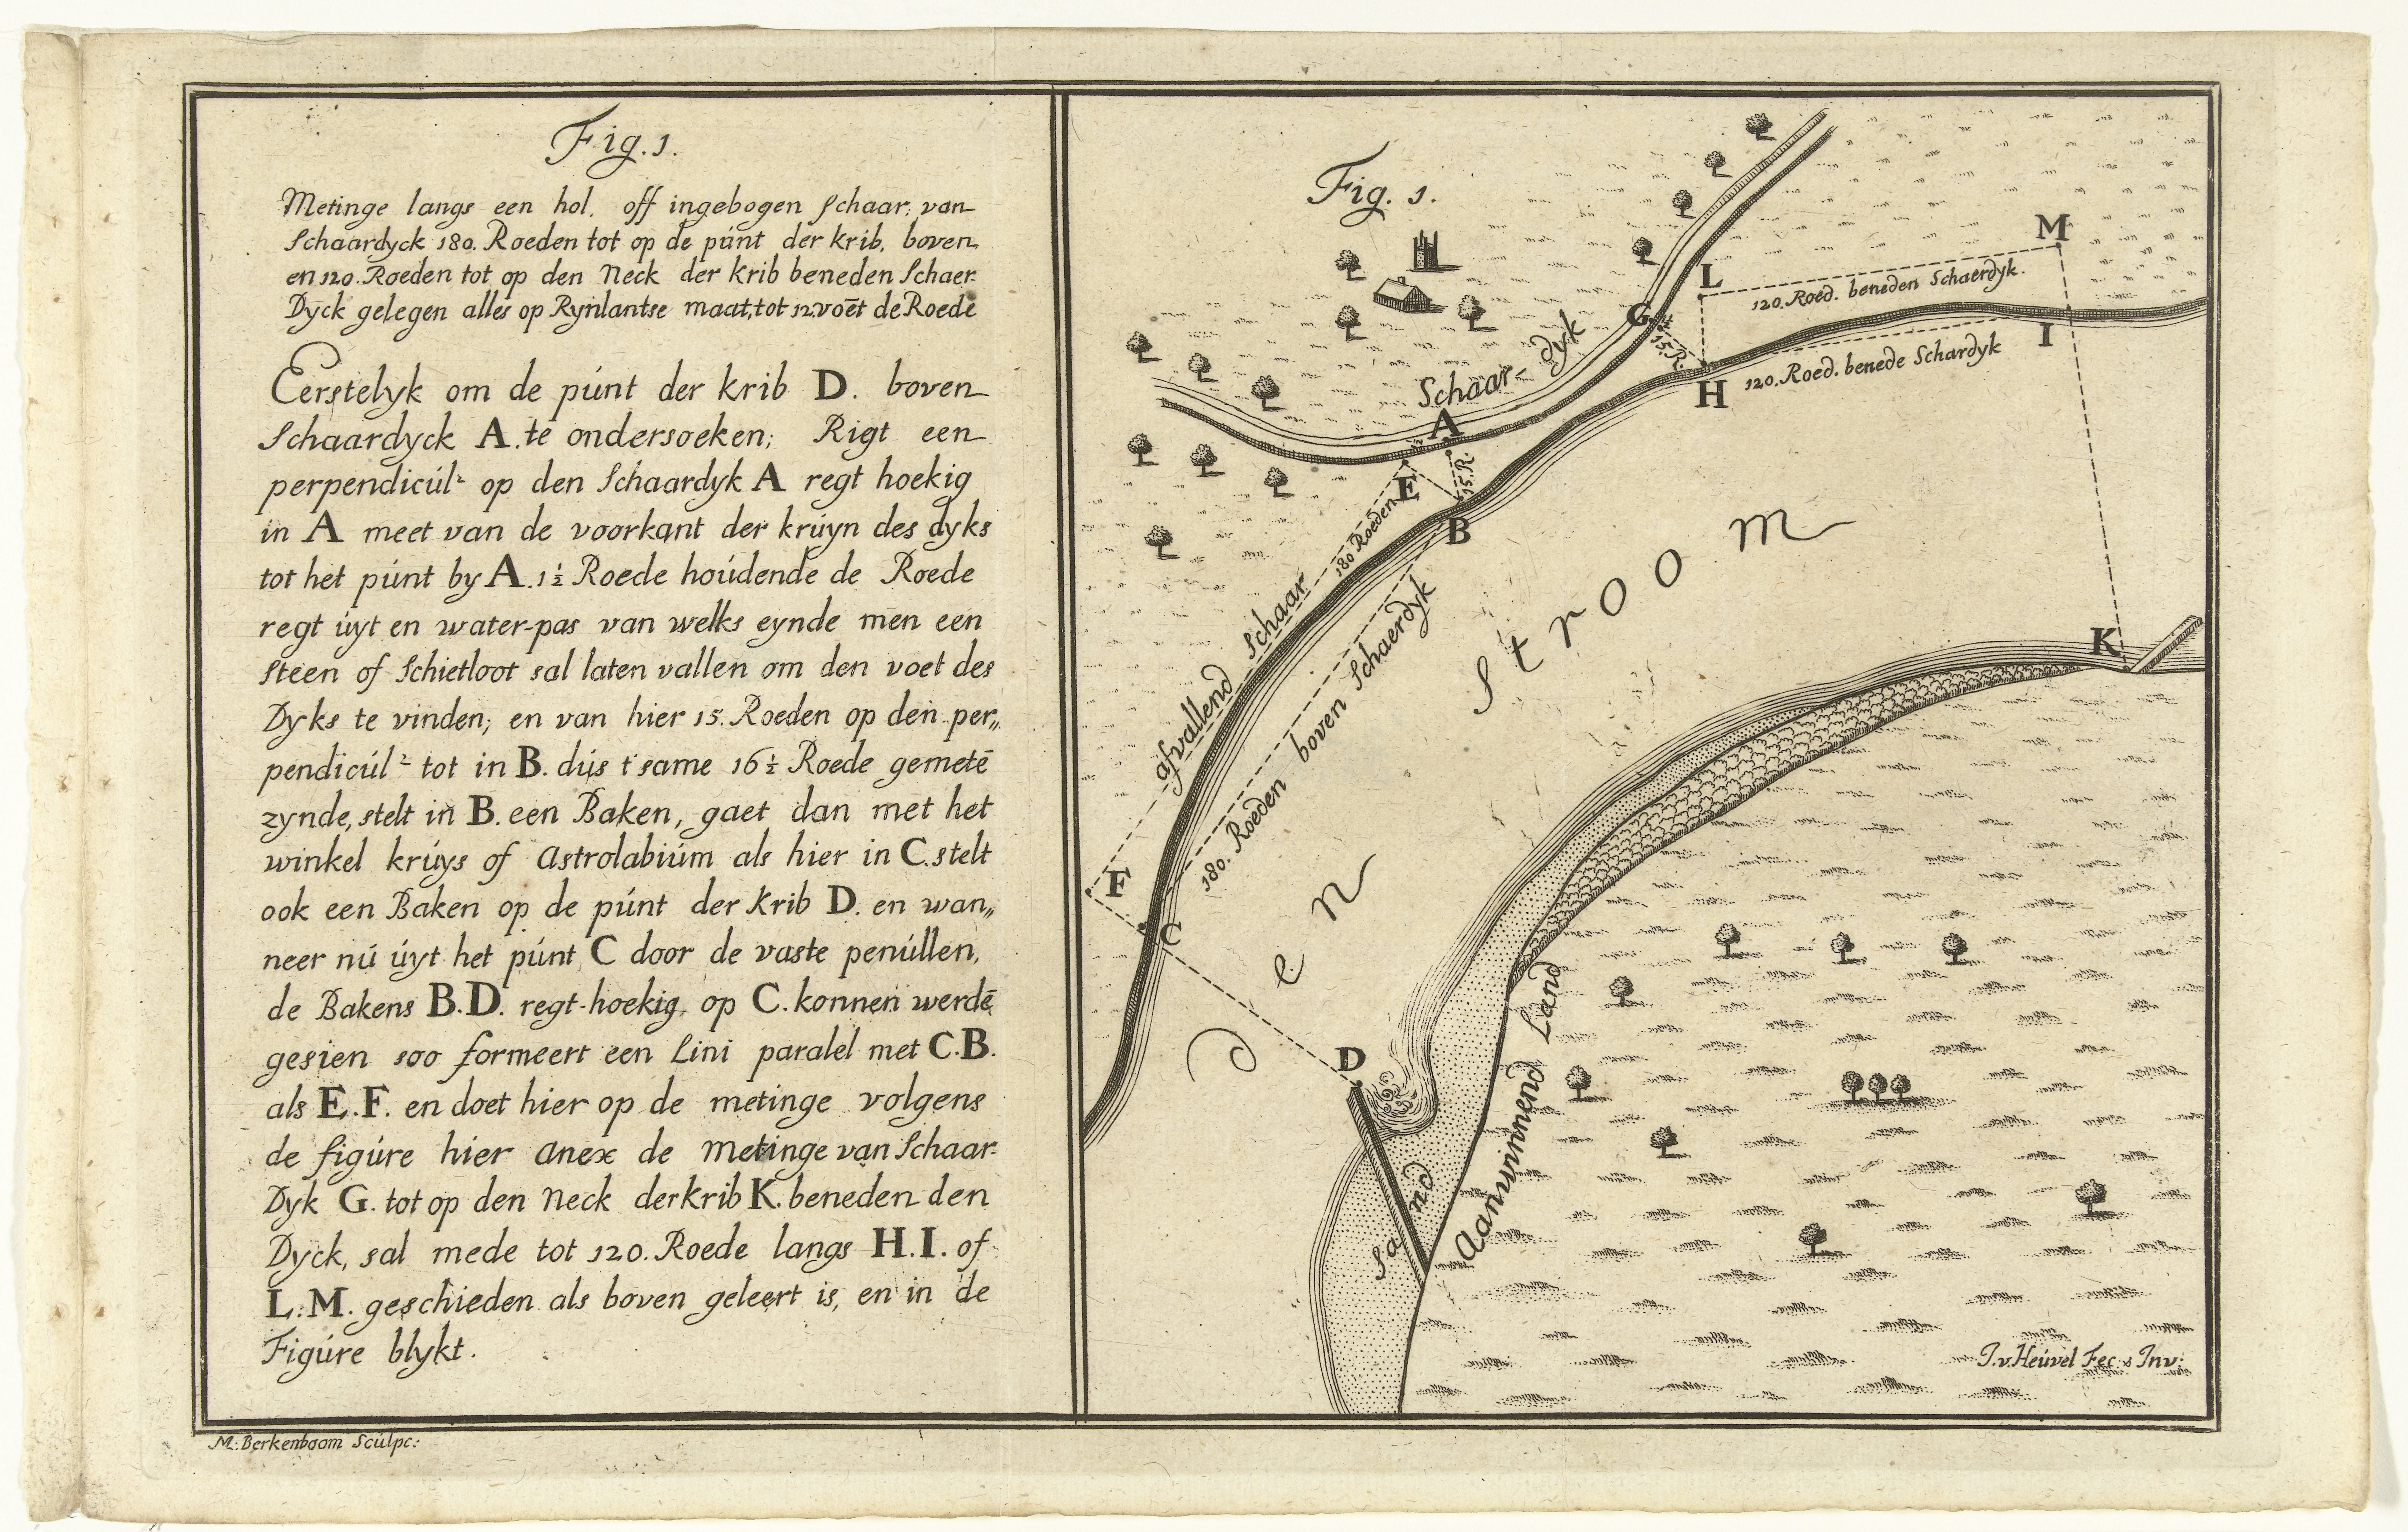 Fig. 1.
Metinge langs een hol. off ingebogen Schaar; van
Schaardyck 180. Roeden tot op de púnt der krib, boven
en 120. Roeden tot op den Neck der krib beneden Schaer-
Dyck gelegen alles op Rynlantse maat, tot 12. voēt de Roede
Eerstelyk om de púnt der krib D. boven
Schaardyck A. te ondersoeken; Rigt een
perpendicúl^r op den Schaardyk A regt hoekig
in A meet van de voorkant der krúyn des dyks
tot het púnt by A. 1½ Roede hoúdende de Roede
regt úyt en water-pas van welks eynde men een
Steen of Schietloot sal laten vallen om den voet des
Dyks te vinden; en van hier 15. Roeden op den per„
pendicúl^r tot in B. dús t'same 16½ Roede gemetē
zynde, stelt in B. een Baken, gaet dan met het
winkel krúys of Astrolabiúm als hier in C. stelt
ook een Baken op de púnt der Krib D. en wan„
neer nú úyt het púnt C door de vaste penúllen,
de Bakens B.D. regt-hoekig op C. konnen werdē
gesien soo formeert een Lini paralel met C.B.
als E.F. en doet hier op de metinge volgens
de figúre hier anex de Metinge van Schaar-
Dyk G. tot op den Neck der krib K. beneden den
Dyck, sal mede tot 120. Roede langs H.I. of
L.M. geschieden als boven geleert is, en in de
Figúre blykt.
M: Berkenboom Scúlpc:
Fig. 1.
M
L
120. Roed. beneden Schaerdyk.
G
15. R.
I
H
120. Roed. benede Schardyk
Schaar-dyk
A
15. R.
E
B
180 Roeden
afvallend Schaar
180. Roeden boven Schaerdyk
Den Stroom
K
F
C
D
Sand
Aanwinnend Land
J. v. Heúvel Fec: & Inv: